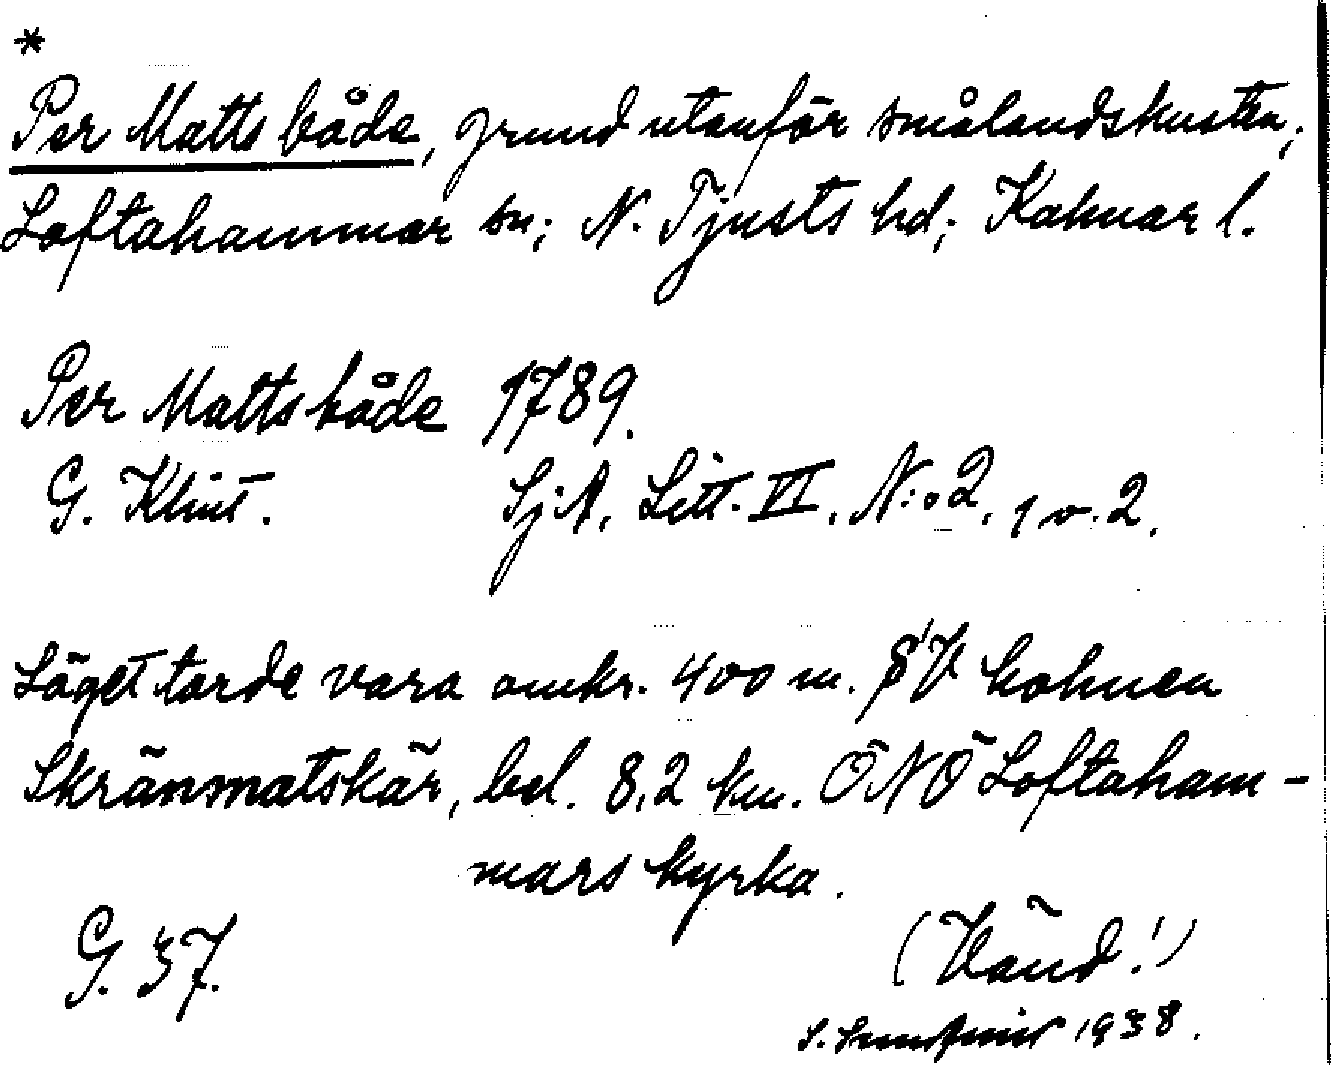 *
Per Matts både, grund utanför smålandskusten;
Loftahammar sn; N. Tjusts hd; Kalmar l.
Per Matts både 1789.
G. Klint. SjA. Litt. VI. N:o 2. 1 o. 2.
Läget torde vara omkr. 400 m. SV holmen
Skränmatskär, bel. 8,2 km. ÖNÖ Loftaham-
mars kyrka.
G. 37. (Vänd!)
S. 1938.